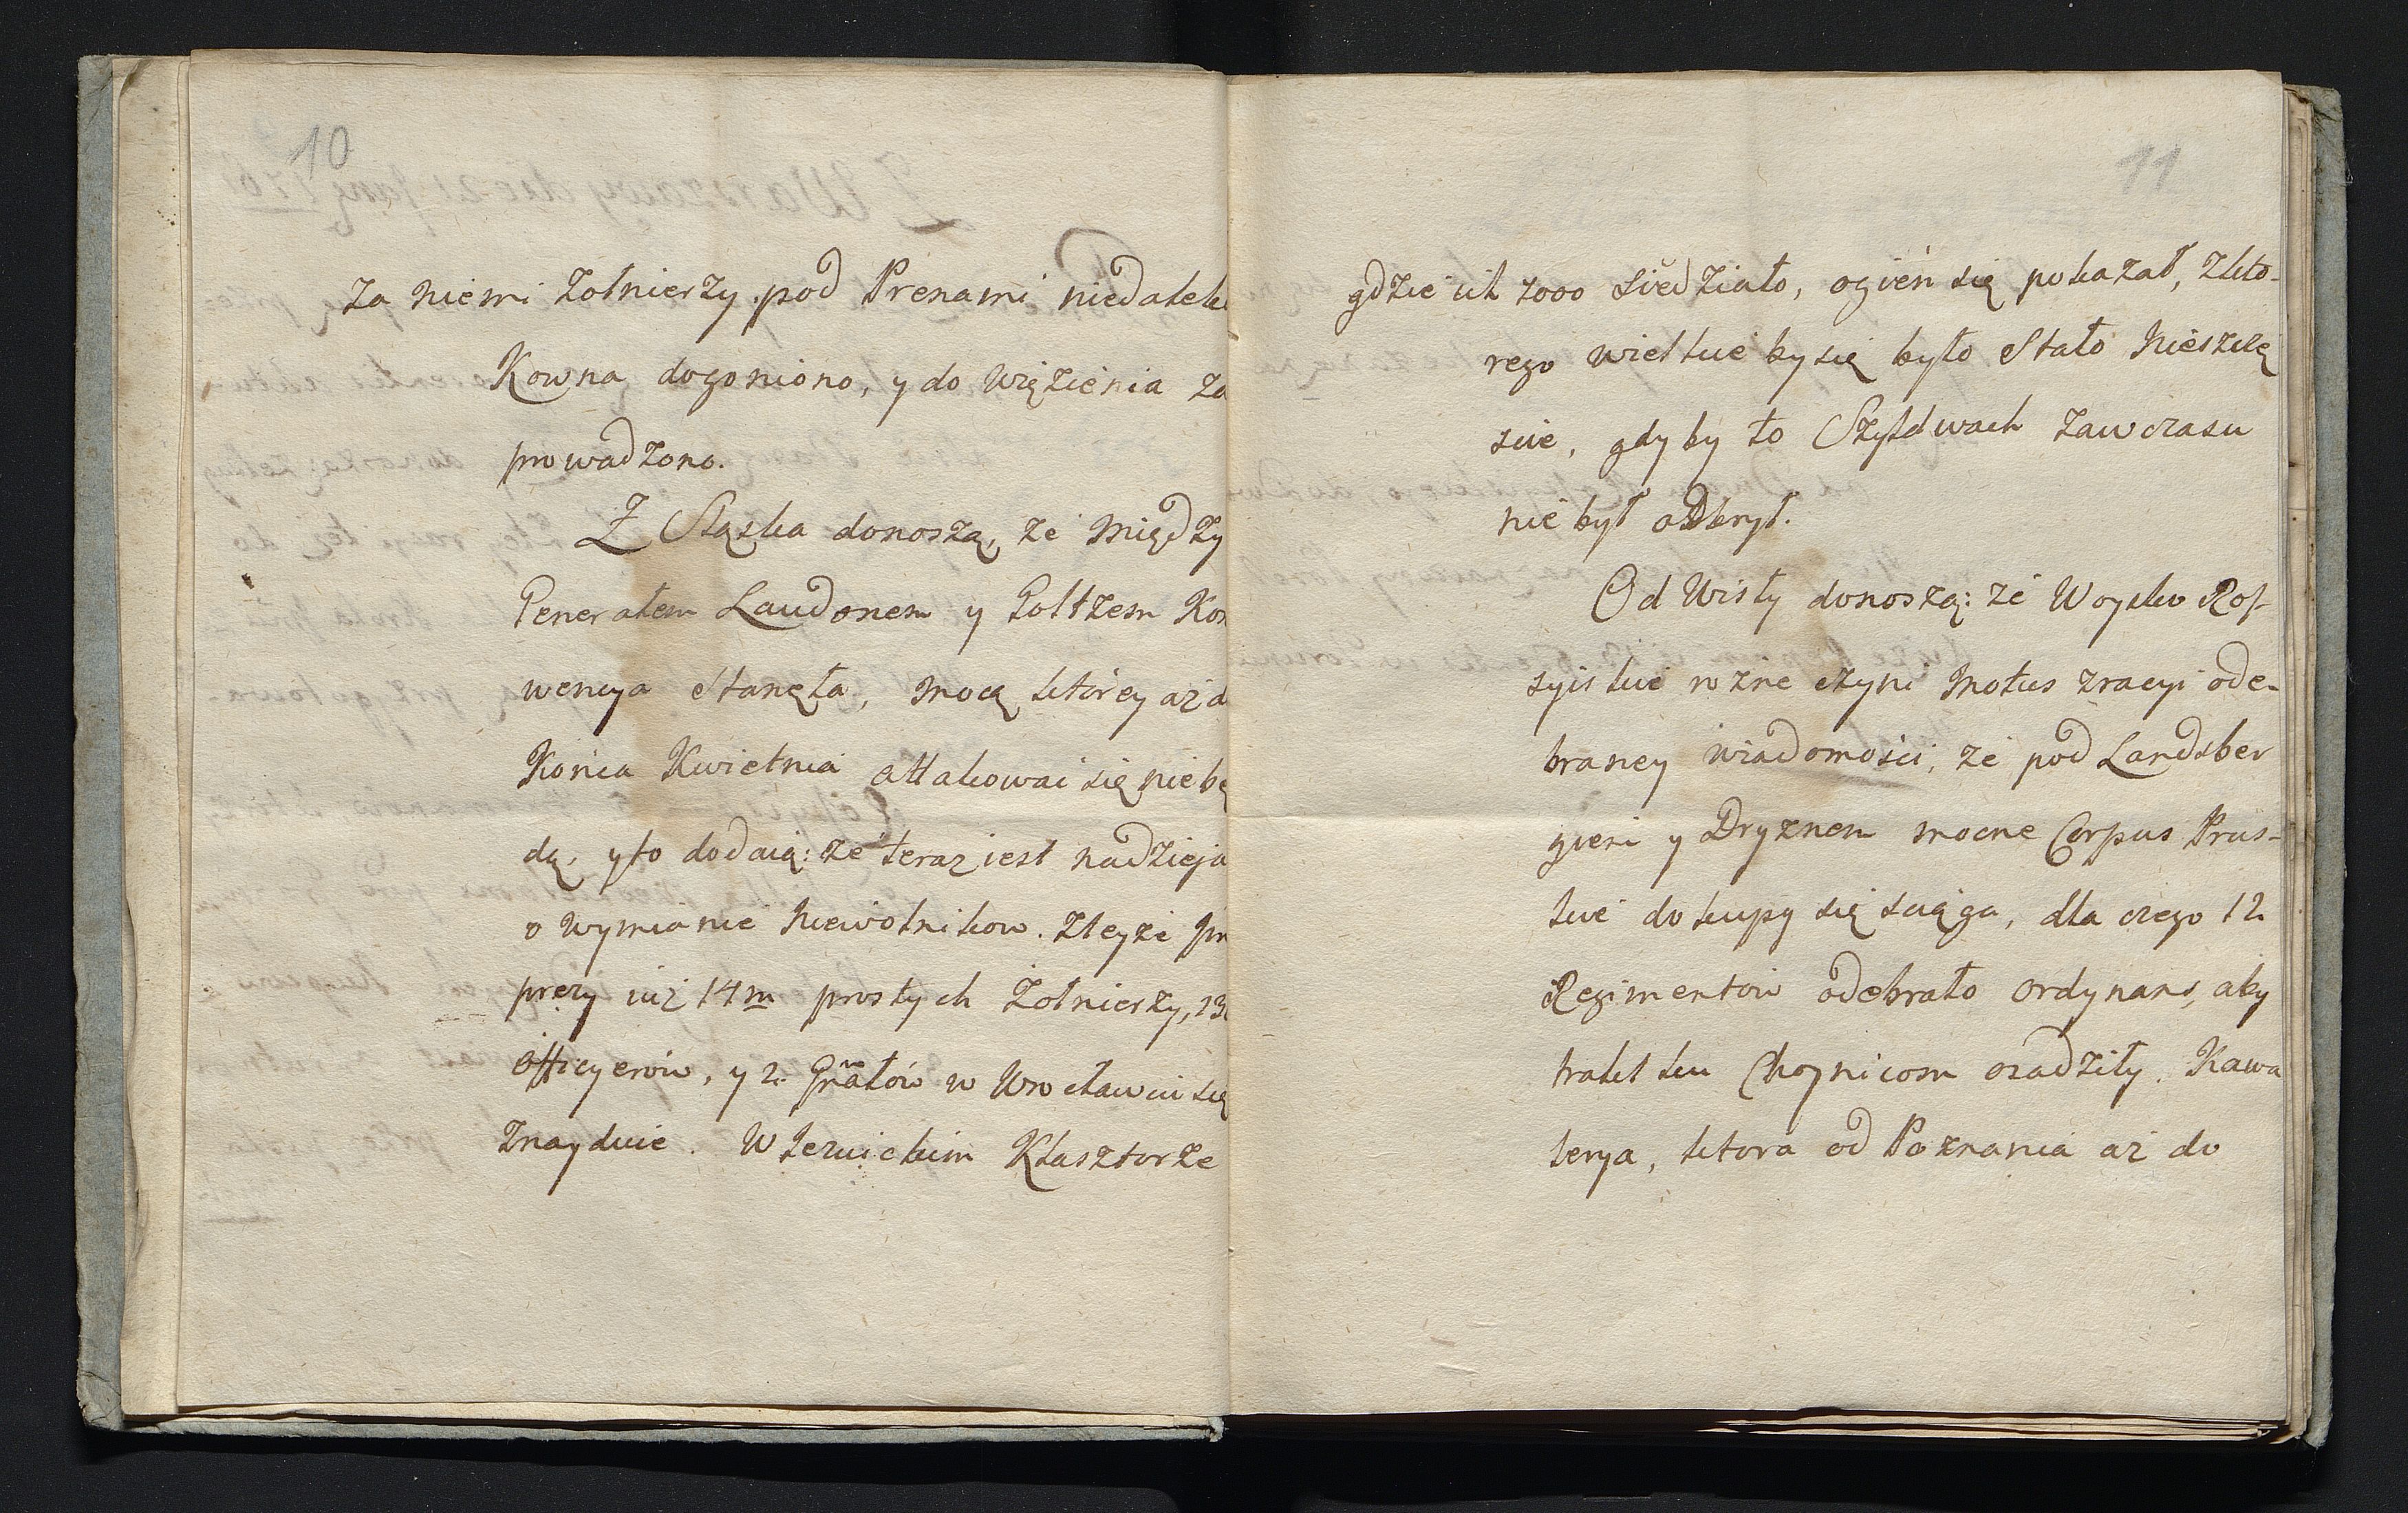 10
za niemi Zołnierzy pod Prenami niedaleko
Kowna dogoniono, y do Więzienia za
prowadzono.
Z Sląska donoszą, że między
Generałem Laudonem y Goltzem Kon
wencya Stanęła, mocą ktorey aż do
Końca Kwietnia attakować się nie bę
dą, y to dodaią: że teraz iest nadzieja
o wymianie Niewolnikow. Zteyże
prezy iuż 14m prostych Zołnierzy, 13
Officyerów, y 2. Grałów w Wrocławiu się
Znayduie. W Jezuickim Klasztorze
11
gdzie ich 2000 siedziało, ogień się pokazał, z kto-
rego wielkie by się było Stało Nieszczę
scie, gdy by to Szyldwach Zawczasu
nie był odkrył.
Od Wisły donoszą: że Woysko Ros-
syiskie rożne czyni Motus z racyi ode-
braney wiadomości, że pod Landsber
giem y Dryznem mocne Corpus Prus-
kie do kupy się sciąga, dla czego 12
Regimentow odebrało ordynans, aby
trakt ku Choynicom osadziły. Kawa
lerya, ktora od Poznania aż do